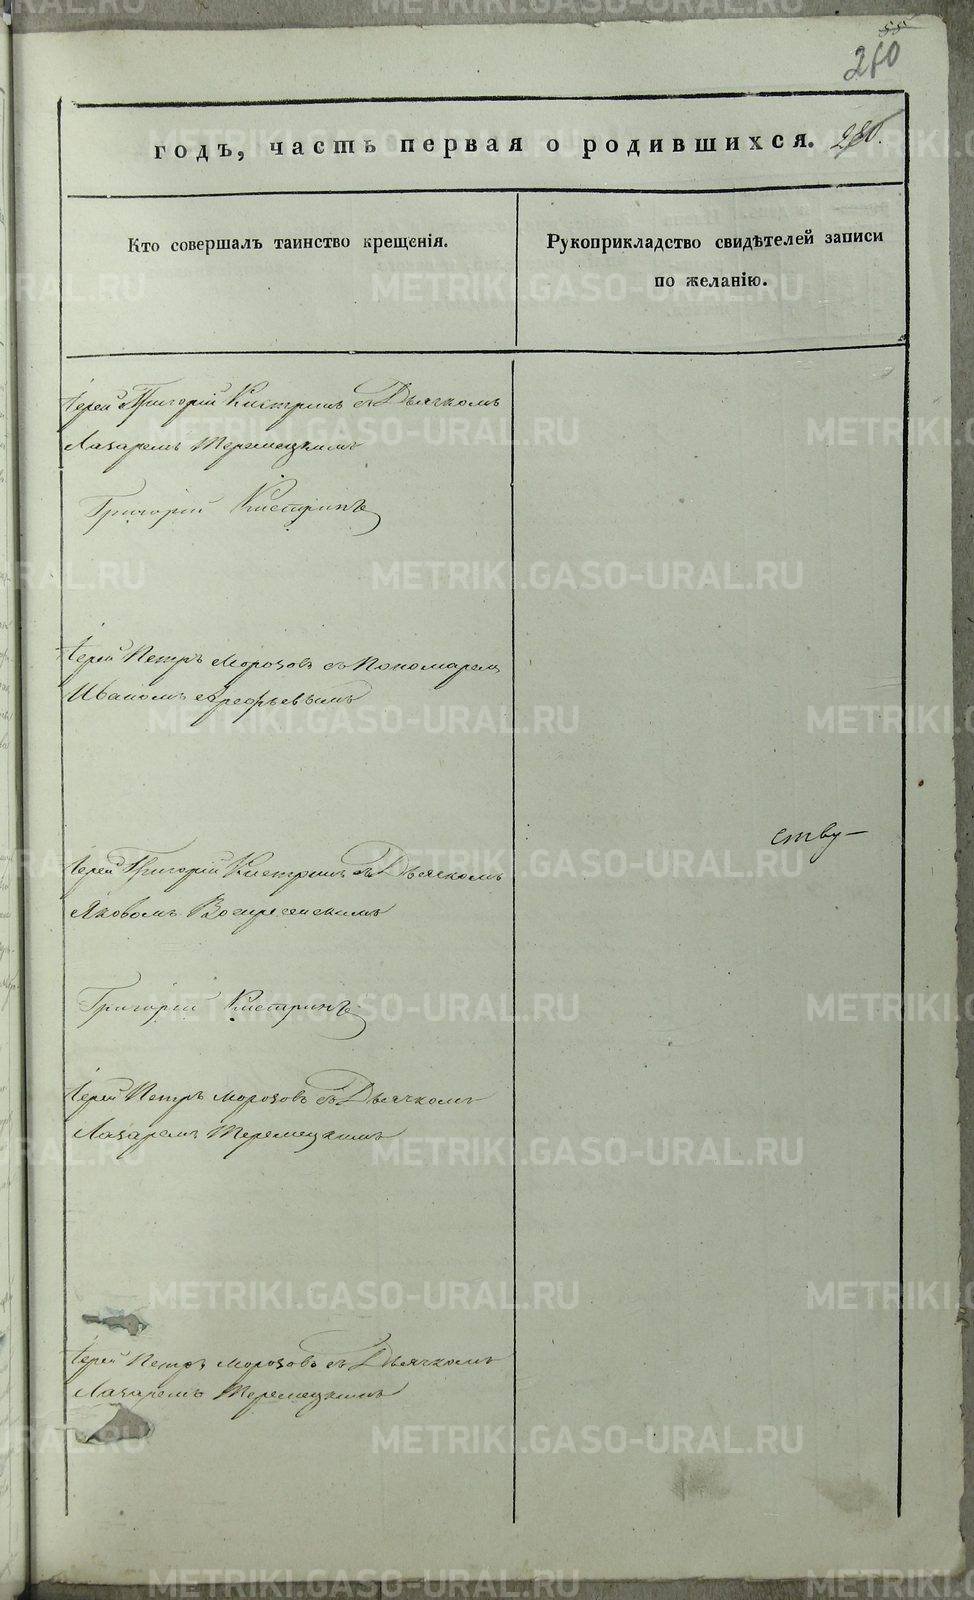 55
280
годъ, часть первая о родившихся. 280.
Кто совершалъ таинство крещенія.
Рукоприкладство свидѣтелей записи
по желанію.
Іерей Григорій Кистринъ съ Дьячкомъ
Лазаремъ Теремецкимъ
Григорій Кистринъ
Іерей Петръ Морозовъ съ Пономарем
Иваномъ
ству
Іерей Григорій Кистринъ съ Дьячкомъ
Яковомъ Воскресенскимъ
Григорій Кистринъ
Іерей Петръ Морозовъ съ Дьячкомъ
Лазаремъ Теремецкимъ
Іерей Петръ Морозовъ съ Дьячкомъ
Лазаремъ Теремецкимъ
METRIKI.GASO-URAL.RU